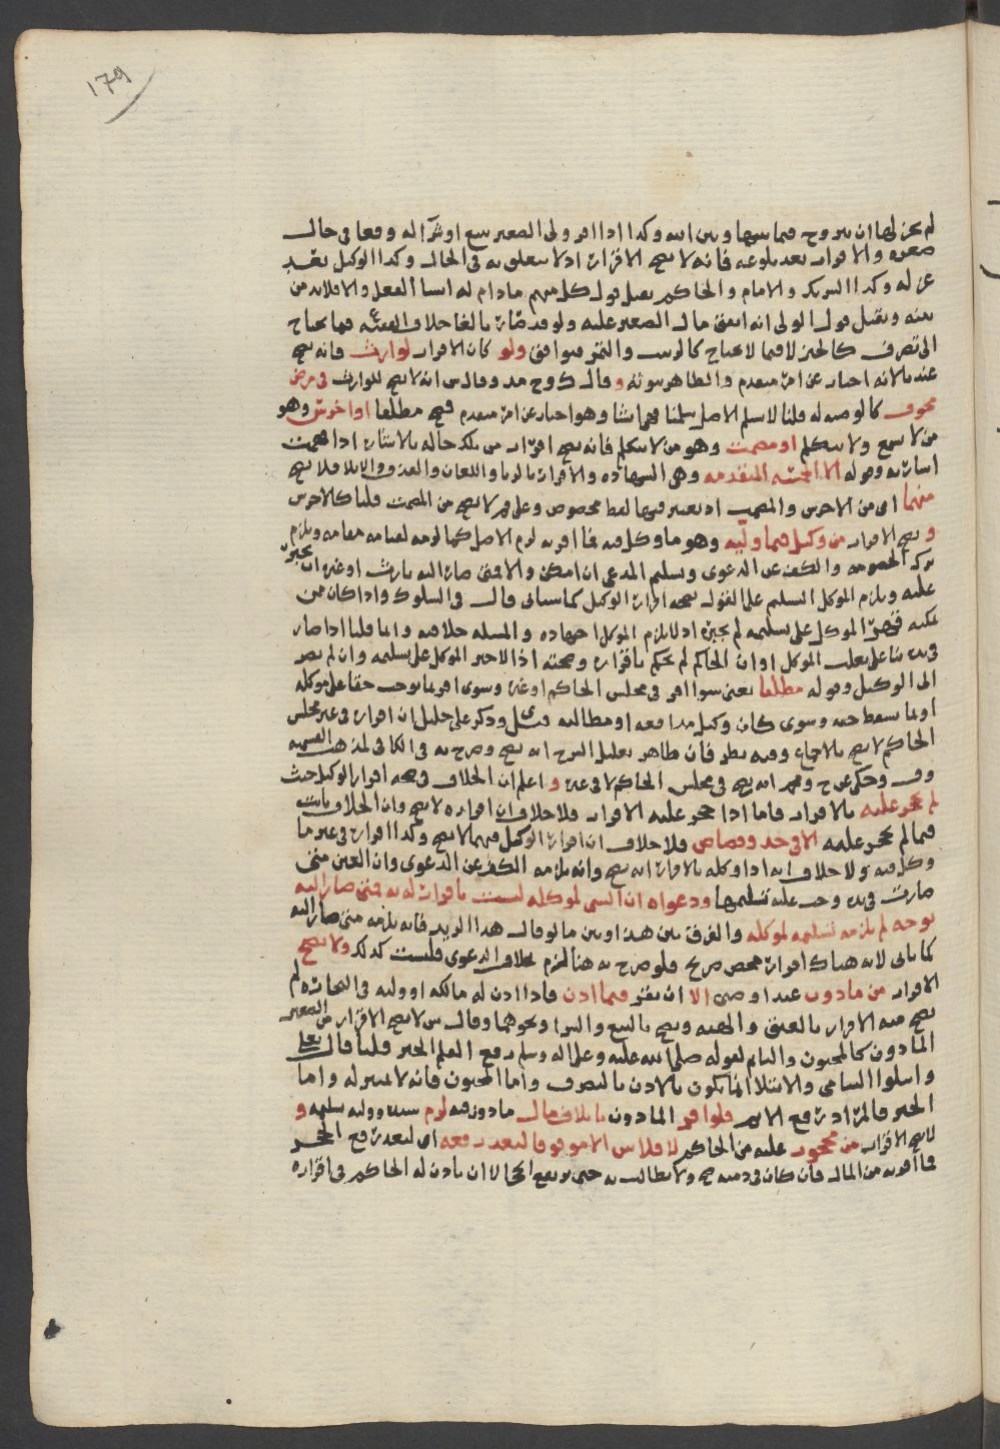 ١٧٩
لم يجز لها ان يتزوج فيما بينها وبين الله وكذا اذا اقر ولي الصغير ببيع او شرآ له وقعا في حال
صغره والاقرار بعد بلوغه فانه لا يصح الاقرار اذ لا يتعلق به في الحال وكذا الوكيل بعد
عزله وكذا الشريك والامام والحاكم يقبل قول كل منهم مادام له انشا الفعل والا فلا بد من
بينه ويقبل قول الولي انه انفق مال الصغير عليه ولو قد صار بالغا خلاف فيما يحتاج
الى تصرف كالخبز لا فيما لا يحتاج كالزبيب والتمر ولو كان الاقرار لوارث فانه يصح
عندنا لانه اخبار عن امر متقدم والظاهر وقال ح وم وقال ش انه لا يصح للوارث في مرض
مخوف كالوصيه له قلنا لا نسلم الاصل سلمنا وهو اخبار عن امر متقدم فصح مطلقا او اخرس وهو
من لا يسمع ولا يتكلم او مصمت وهو من لا يتكلم فانه يصح اقرار من تلك حاله بالاشارة اذا فهمت
اشارته وقوله الا الخمسه المتقدمه وهي الشهاده والاقرار بالزنا واللعان والقذف والايلا فلا يصح
منهما اي من الاخرس والمصمت اذ يعتبر فيها لفظ مخصوص وعلى م لا يصح من المصمت قلنا كالاخرس
و يصح الاقرار من وكيل فيما وليه وهو ما وكل فيه فما اقر به لزم الاصل كما لزمه لقيامه مقامه ويلزم
ترك الخصومه والكف عن الدعوى وتسليم المدعى ان امكن والا فمتى صار اليه بارث او غيره اجبر
عليه ويلزم الموكل التسليم على القول بصحه اقرار الوكيل كما سياتي قال في السلوك واذا كان ممن
يمكنه قصر الموكل على تسليمه لم يجبره اذ لا يلزم الموكل اجتهاده والمسله خلافيه وانما قلنا اذا صار
في يده بنا على تغلب الموكل او ان الحاكم لم يحكم باقراره وصحته اذ الاجبر الموكل على تسليمه وان لم يصر
الى الوكيل وقوله مطلقا يعني سوا اقر في مجلس الحاكم او غيره وسوى اقر بما يوجب حقا على موكله
او بما يسقط حقه وسوى كان وكيل مدافعه او مطالبه وذكر علي خليل ان اقراره في غير مجلس
الحاكم لا يصح بالاجماع وفيه نظر فان ظاهر تعليل الشرح انه يصح وصرح به في الكافي لمذهب
وحكى عن ح ومحمد انه يصح في مجلس الحاكم لا في غيره و اعلم ان الخلاف في صحه اقرار الوكيل حيث
لم يحجر عليه بالاقرار فاما اذا حجر عليه الاقرار فلا خلاف ان اقراره لا يصح وان الخلاف ثابت
فيما لم يحجر عليه الا في حد وقصاص فلا خلاف ان اقرار الوكيل فيهما لا يصح وكذا اقراره في غير ما
وكل فيه ولا خلاف انه اذا وكله بالاقرار انه يصح وانه يلزمه الكف عن الدعوى وان العين متى
صارت في يده وجب عليه تسليمها ودعواه ان الشي لموكله ليست باقرار له به فمتى صار اليه
بوجه لم يلزمه تسليمه لموكله والفرق بين هذا وبين ما لو قال هذا لزيد فانه يلزمه متى صار اليه
كما ياتي لانه هناك اقرار محض صريح فلو صرح به هنا لزم بخلاف الدعوى فليست كذلك ولا يصح
الاقرار من ماذون عبد او صبي الا ان يقر فيما اذن فاذا اذن له مالكه او وليه في التجاره لم
يصح منه الاقرار بالعتق والهبه ويصح بالبيع والشرا ونحوهما وقال ش لا يصح الاقرار من الصغير
الماذون كالمجنون والنايم لقوله صلى الله عليه وعلى اله وسلم رفع القلم الخبر قلنا قال تعالى
وابتلوا اليتامى والابتلا انما يكون بالاذن بالتصرف واما المجنون فانه لا تمييز له واما
الخبر فالمراد رفع الاثم فلو اقر الماذون باتلاف مال ماذون فيه لزم سيده ووليه تسليمه و
لا يصح الاقرار من محجور عليه من الحاكم لافلاس الا موقوفا ليعد رفعه اي لبعد رفع الحجر
فما اقر به من المال فان كان في ذمته صح ولا يطالب به حتى يرتفع الحجر الا ان ياذن له الحاكم في اقراره